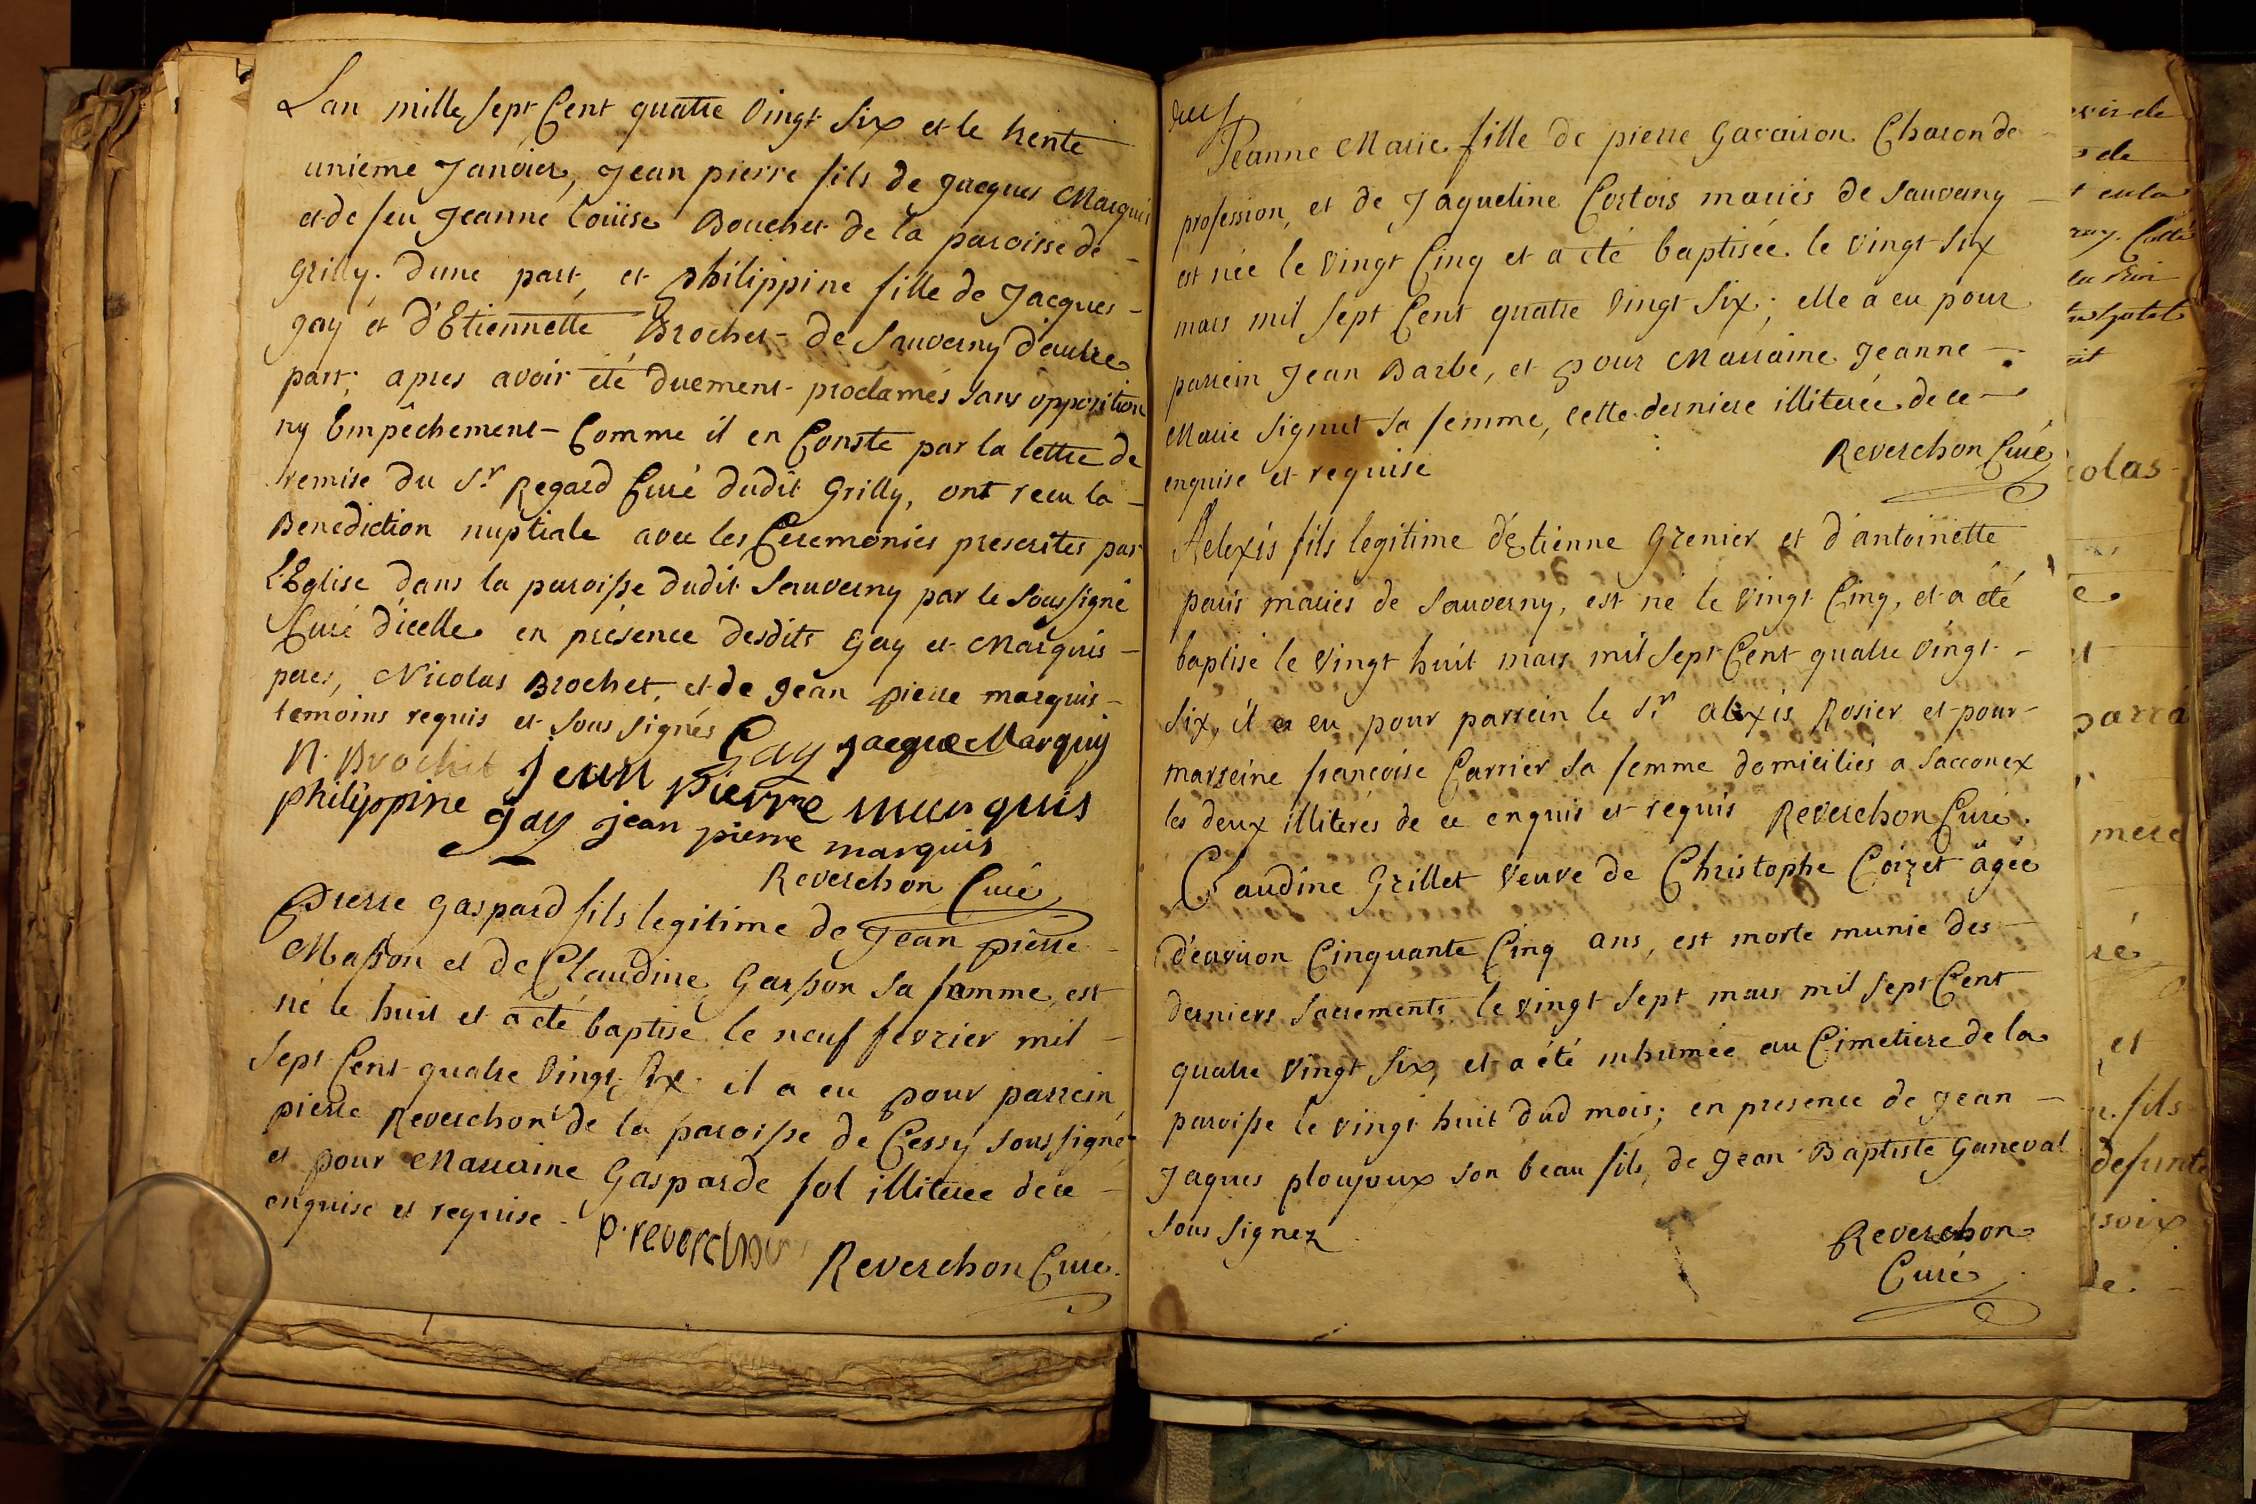 Lan mille sept Cent quatre vingt Six et le trente
unieme Janvier, Jean pierre fils de Jacques Marquis
et de feu Jeanne Loüise Bouchet de la paroisse de
Grilly. dune part, et philippine fille de Jacques
gay et d'Etiennette Brochet de Sauverny d'autre
part, apres avoir été duement proclamés sans opposition
ny Empêchement Comme il en Conste par la lettre de
remise du Sr Regard Curé dudit Grilly, ont recu la
Benediction nuptiale avec les Ceremonies prescrites par
l'Eglise dans la paroisse dudit Sauverny par le Soussigné
Curé d'icelle en présence desdits Gay et Marquis
peres, Nicolas Brochet, et de Jean pierre marquis
temoins requis et Sous signés
Gay jacque Marquij
N. Brochet Jean pierre marquis
philippine gay jean pierre marquis
Reverchon Curé
pierre Gaspard fils legitime de Jean pierre
Masson et de Claudine Gasson sa femme, est
né le huit et a été baptisé le neuf fevrier mil
Sept Cent quatre Vingt Six. il a eu pour parrein
pierre Reverchon de la paroisse de Cessy soussigné
et pour Marraine Gasparde fol illiterée de ce
enquise et requise. p. reverchon
Reverchon Curé.
Jeanne Marie fille de pierre Gavairon Charon de
profession, et de Jaqueline Cortois mariés de Sauverny
est née le vingt Cinq et a eté baptisée le vingt Six
mars mil Sept Cent quatre vingt Six; elle a eu pour
parrein Jean Barbe, et pour Marraine Jeanne
Marie Signut sa femme, cette derniere illiterée de ce
enquise et requise
Reverchon Curé
Aelexis fils legitime d'Etienne Grenier et d'antoinette
paris mariés de Sauverny, est né le vingt Cinq, et a été
baptisé le vingt huit mars mil Sept Cent quatre vingt
Six, il a eu pour parrein le Sr alexis Rosier et pour
marreine francoise Carrier sa femme domiciliés a Sacconex
les deux illiterés de ce enquis et requis Reverchon Curé.
Claudine Grillet veuve de Christophe Coizet âgée
d'environ Cinquante Cinq ans, est morte munie des
derniers Sacrements le vingt Sept mars mil Sept Cent
quatre vingt Six, et a été inhumée au Cimetiere de la
paroisse le vingt huit dud mois; en presence de Jean
Jaques ploujoux son beau fils, de Jean Baptiste Ganeval
Sous Signez
Reverchon
Curé
colas
mere
et
fils
defunte